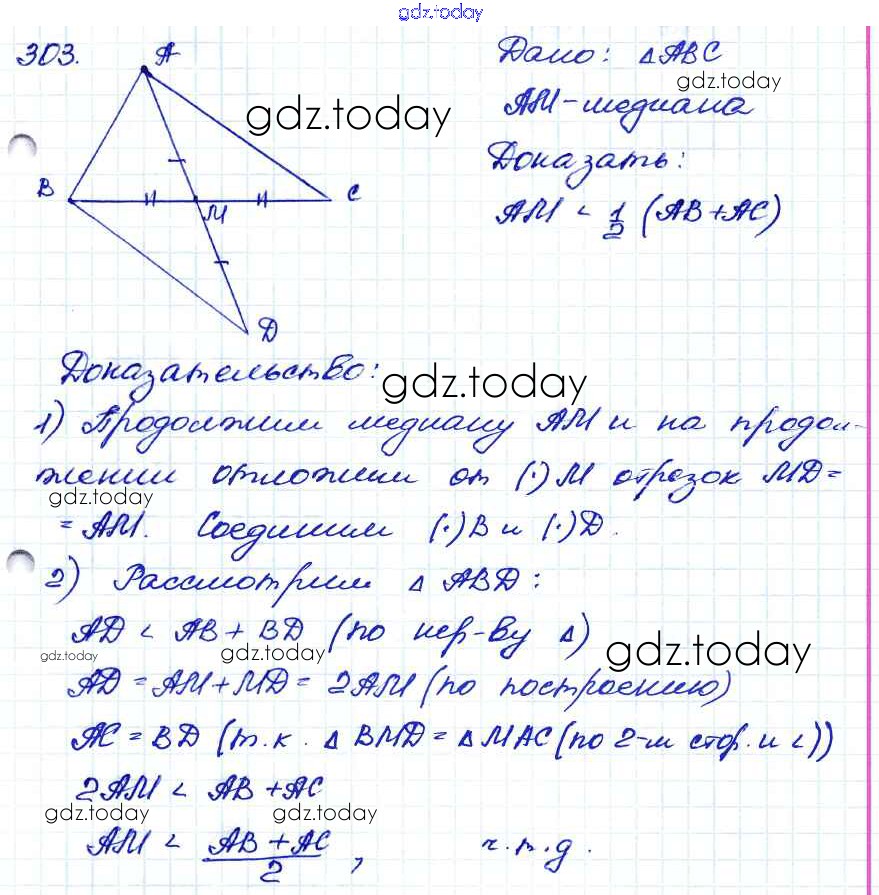 gdz.today
303.
A
B
C
M
D
Дано: △ABC
gdz.today
AM-медиана
gdz.today
Доказать:
AM < 1/2 (AB+AC)
Доказательство:
gdz.today
1) Продолжим медиану AM и на продол-
жении отложим от (·) M отрезок MD=
gdz.today
= AM. Соединим (·) B и (·) D.
2) Рассмотрим △ ABD:
AD < AB + BD (по нер-ву △)
gdz.today
gdz.today
gdz.today
AD = AM+MD = 2AM (по построению)
AC = BD (т.к. △ BMD = △ MAC (по 2-м стор. и <))
2AM < AB + AC
gdz.today
gdz.today
AM < AB + AC / 2, ч.т.д.